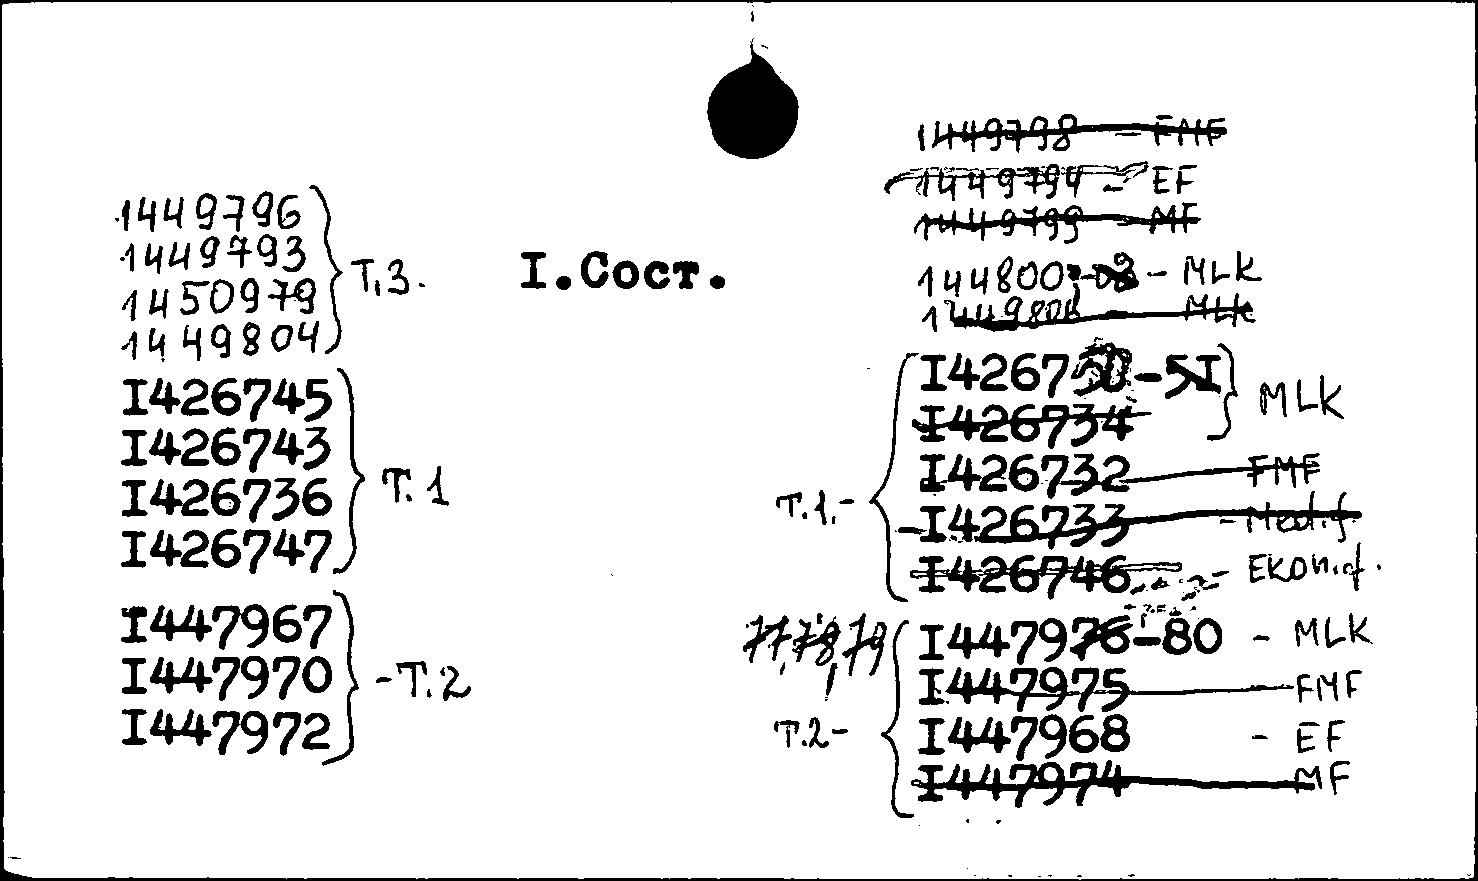 1449796
1449793
1450979
1449804
т.3.
I426745
I426743
I426736
I426747
т.1
I447967
I447970
I447972
-т.2
I.Сост.
1449798 - FMF
1449794 - EF
1449799 - MF
144800 - MLK
- MLK
т.1.-
I426750-5I
I426734
MLK
I426732 - FMF
I426733 - Med.f.
I426746 - Ekon.f.
77,78,79
т.2-
I447976-80 - MLK
I447975 - FMF
I447968 - EF
I447974 - MF